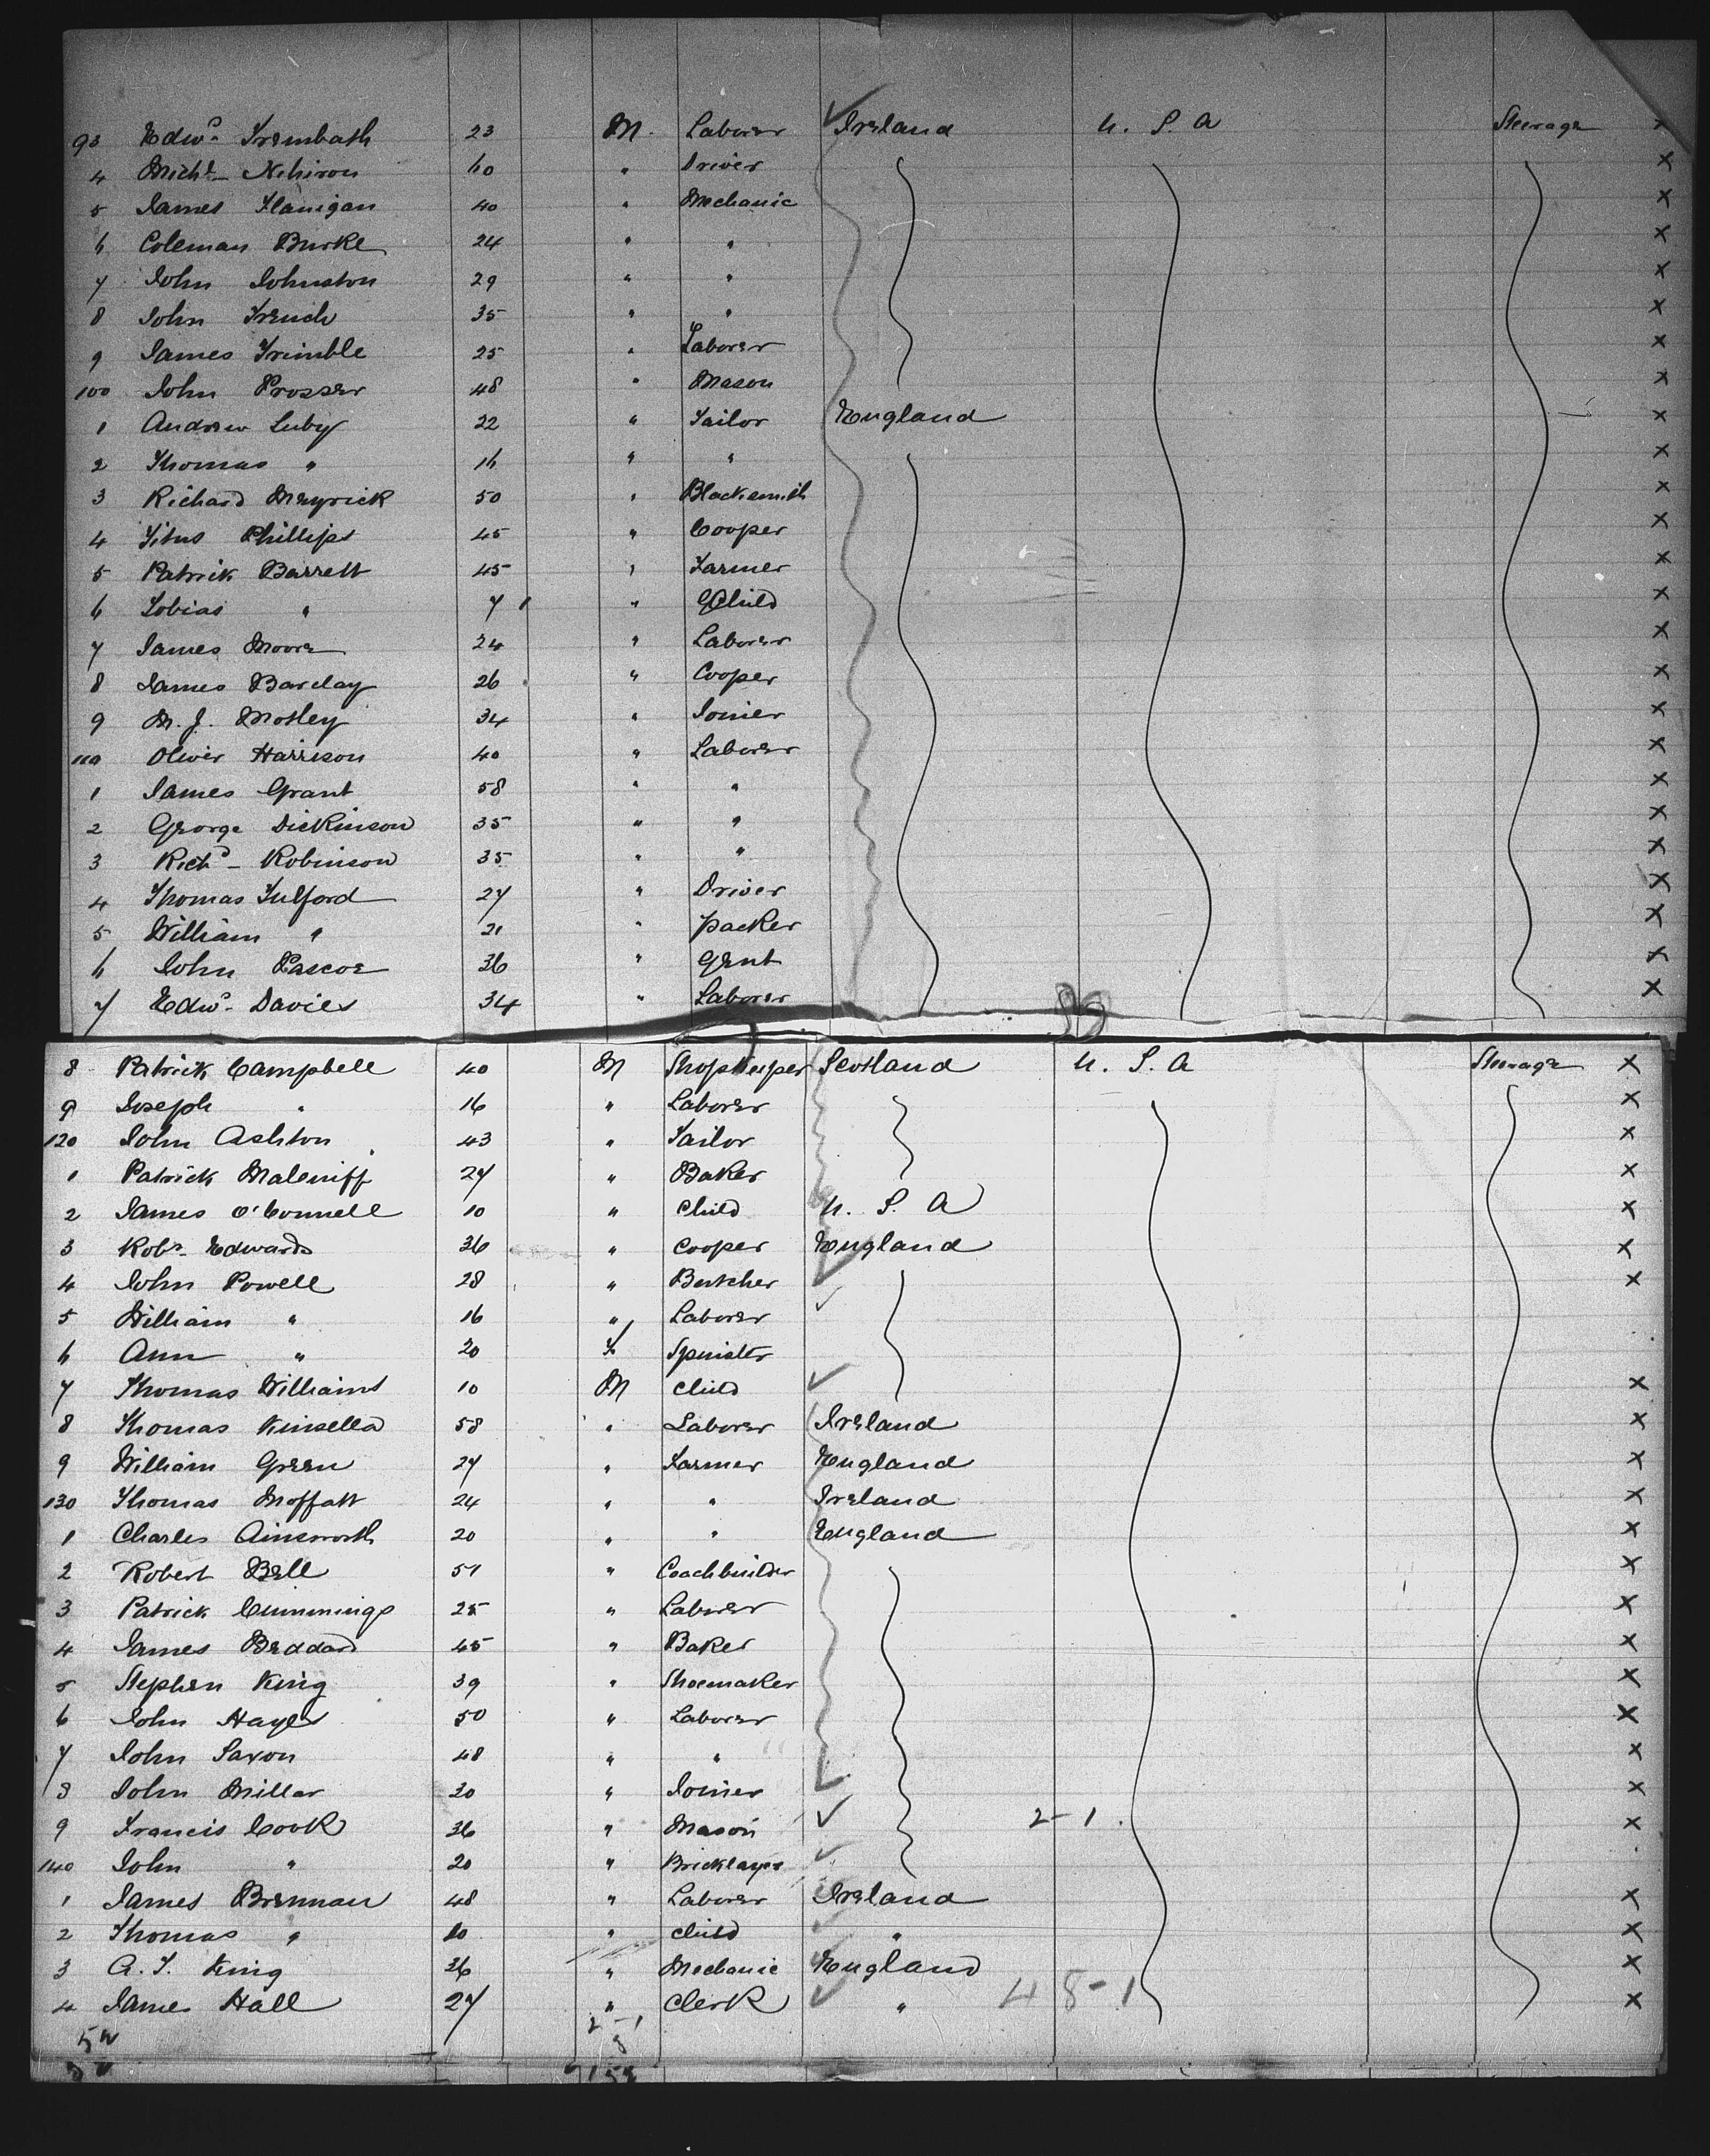 93 Edwd Trembath 23 M. Laborer Ireland U. S. A Steerage X
4 Michl 60 " Driver X
5 James Flanigan 40 " Mechanic X
6 Coleman Burke 24 " " X
7 John Johnston 29 " " X
8 John French 35 " " X
9 James Trimble 25 " Laborer X
100 John Prosser 48 " Mason X
1 Andrew Luby 22 " Tailor England X
2 Thomas " 16 " " X
3 Richard Meyrick 50 " Blacksmith X
4 Titus Phillips 45 " Cooper X
5 Patrick Barrett 45 " Farmer X
6 Tobias " 7 " Child X
7 James Moore 24 " Laborer X
8 James Barclay 26 " Cooper X
9 M. J. Motley 34 " Joiner X
110 Oliver Harrison 40 " Laborer X
1 James Grant 58 " " X
2 George Dickinson 35 " " X
3 Richd Robinson 35 " " X
4 Thomas Fulford 27 " Driver X
5 William " 21 " Packer X
6 John Pascoe 36 " Gent X
7 Edwd Davies 34 " Laborer X
8 Patrick Campbell 40 M Shopkeeper Scotland U. S. A Steerage X
9 Joseph " 16 " Laborer X
120 John Ashton 43 " Tailor X
1 Patrick Maleniff 27 " Baker X
2 James O'Connell 10 " Child U. S. A X
3 Robt Edwards 36 " Cooper England X
4 John Powell 28 " Butcher X
5 William " 16 " Laborer
6 Ann " 20 F Spinster
7 Thomas Williams 10 M Child X
8 Thomas Kinsella 58 " Laborer Ireland X
9 William Green 27 " Farmer England X
130 Thomas Moffatt 24 " " Ireland X
1 Charles Ainsworth 20 " " England X
2 Robert Bell 51 " Coachbuilder X
3 Patrick Cummings 25 " Laborer X
4 James Beddard 45 " Baker X
5 Stephen King 39 " Shoemaker X
6 John Hayes 50 " Laborer X
7 John Saxon 48 " " X
8 John Millar 30 " Joiner X
9 Francis Cook 36 " Mason 2-1 X
140 John " 20 " Bricklayer
1 James Brennan 48 " Laborer Ireland X
2 Thomas " 10 " Child " X
3 A. T. King 36 " Mechanic England X
4 James Hall 27 " Clerk " 48-1 X
2-1